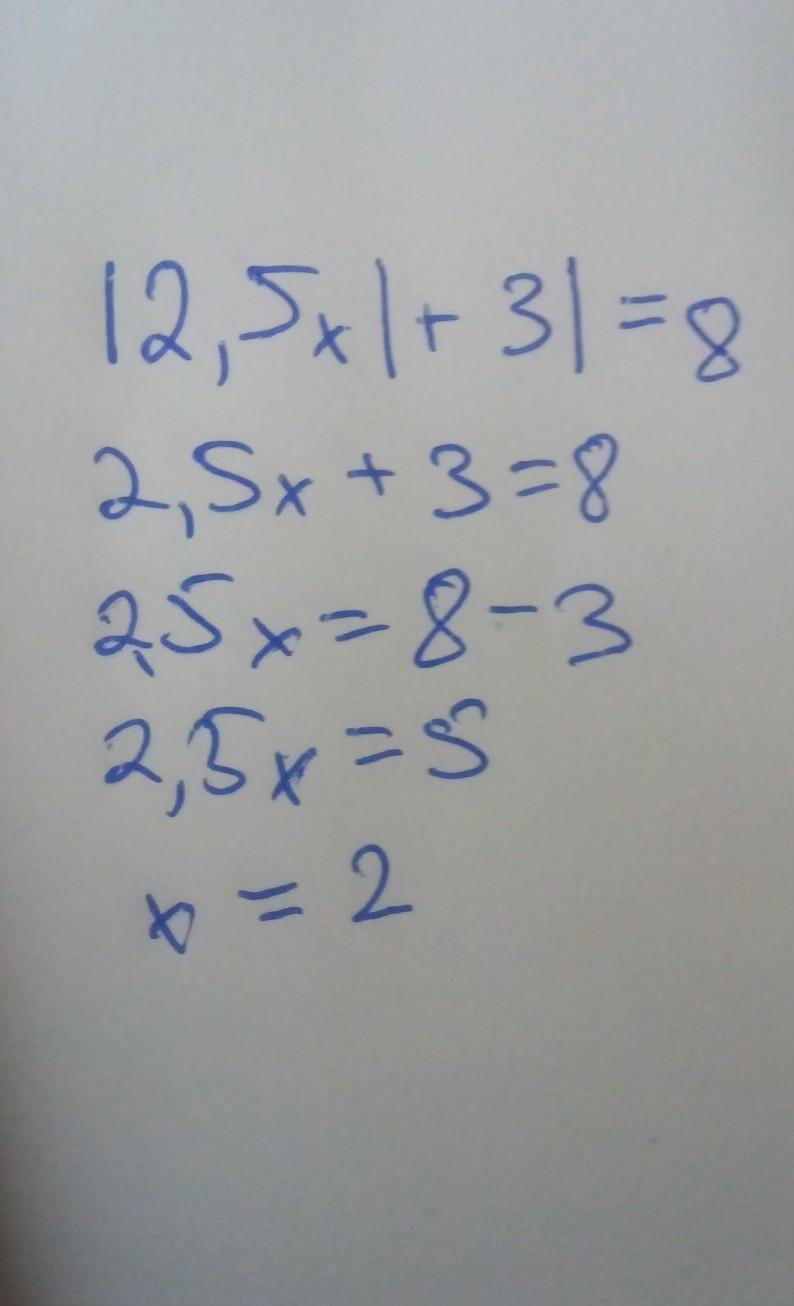 |2,5x|+ 3| = 8
2,5x + 3 = 8
2,5x = 8 - 3
2,5x = 5
x = 2